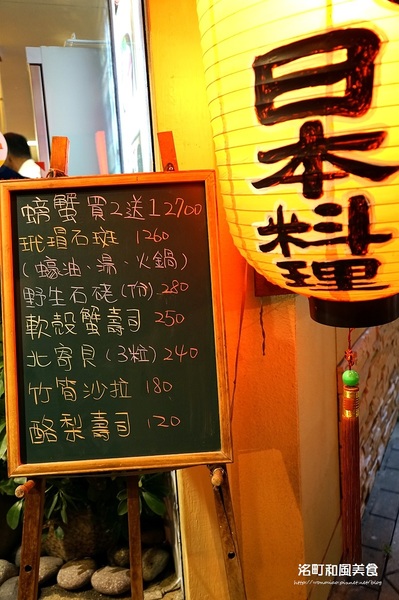 日本料理
螃蟹買2送1 2700
玳瑁石斑 1260
(蠔油、湯、火鍋)
野生石硓(份) 280
軟殼蟹壽司 250
北寄貝(3粒) 240
竹筍沙拉 180
酪梨壽司 120
洺町和風美食